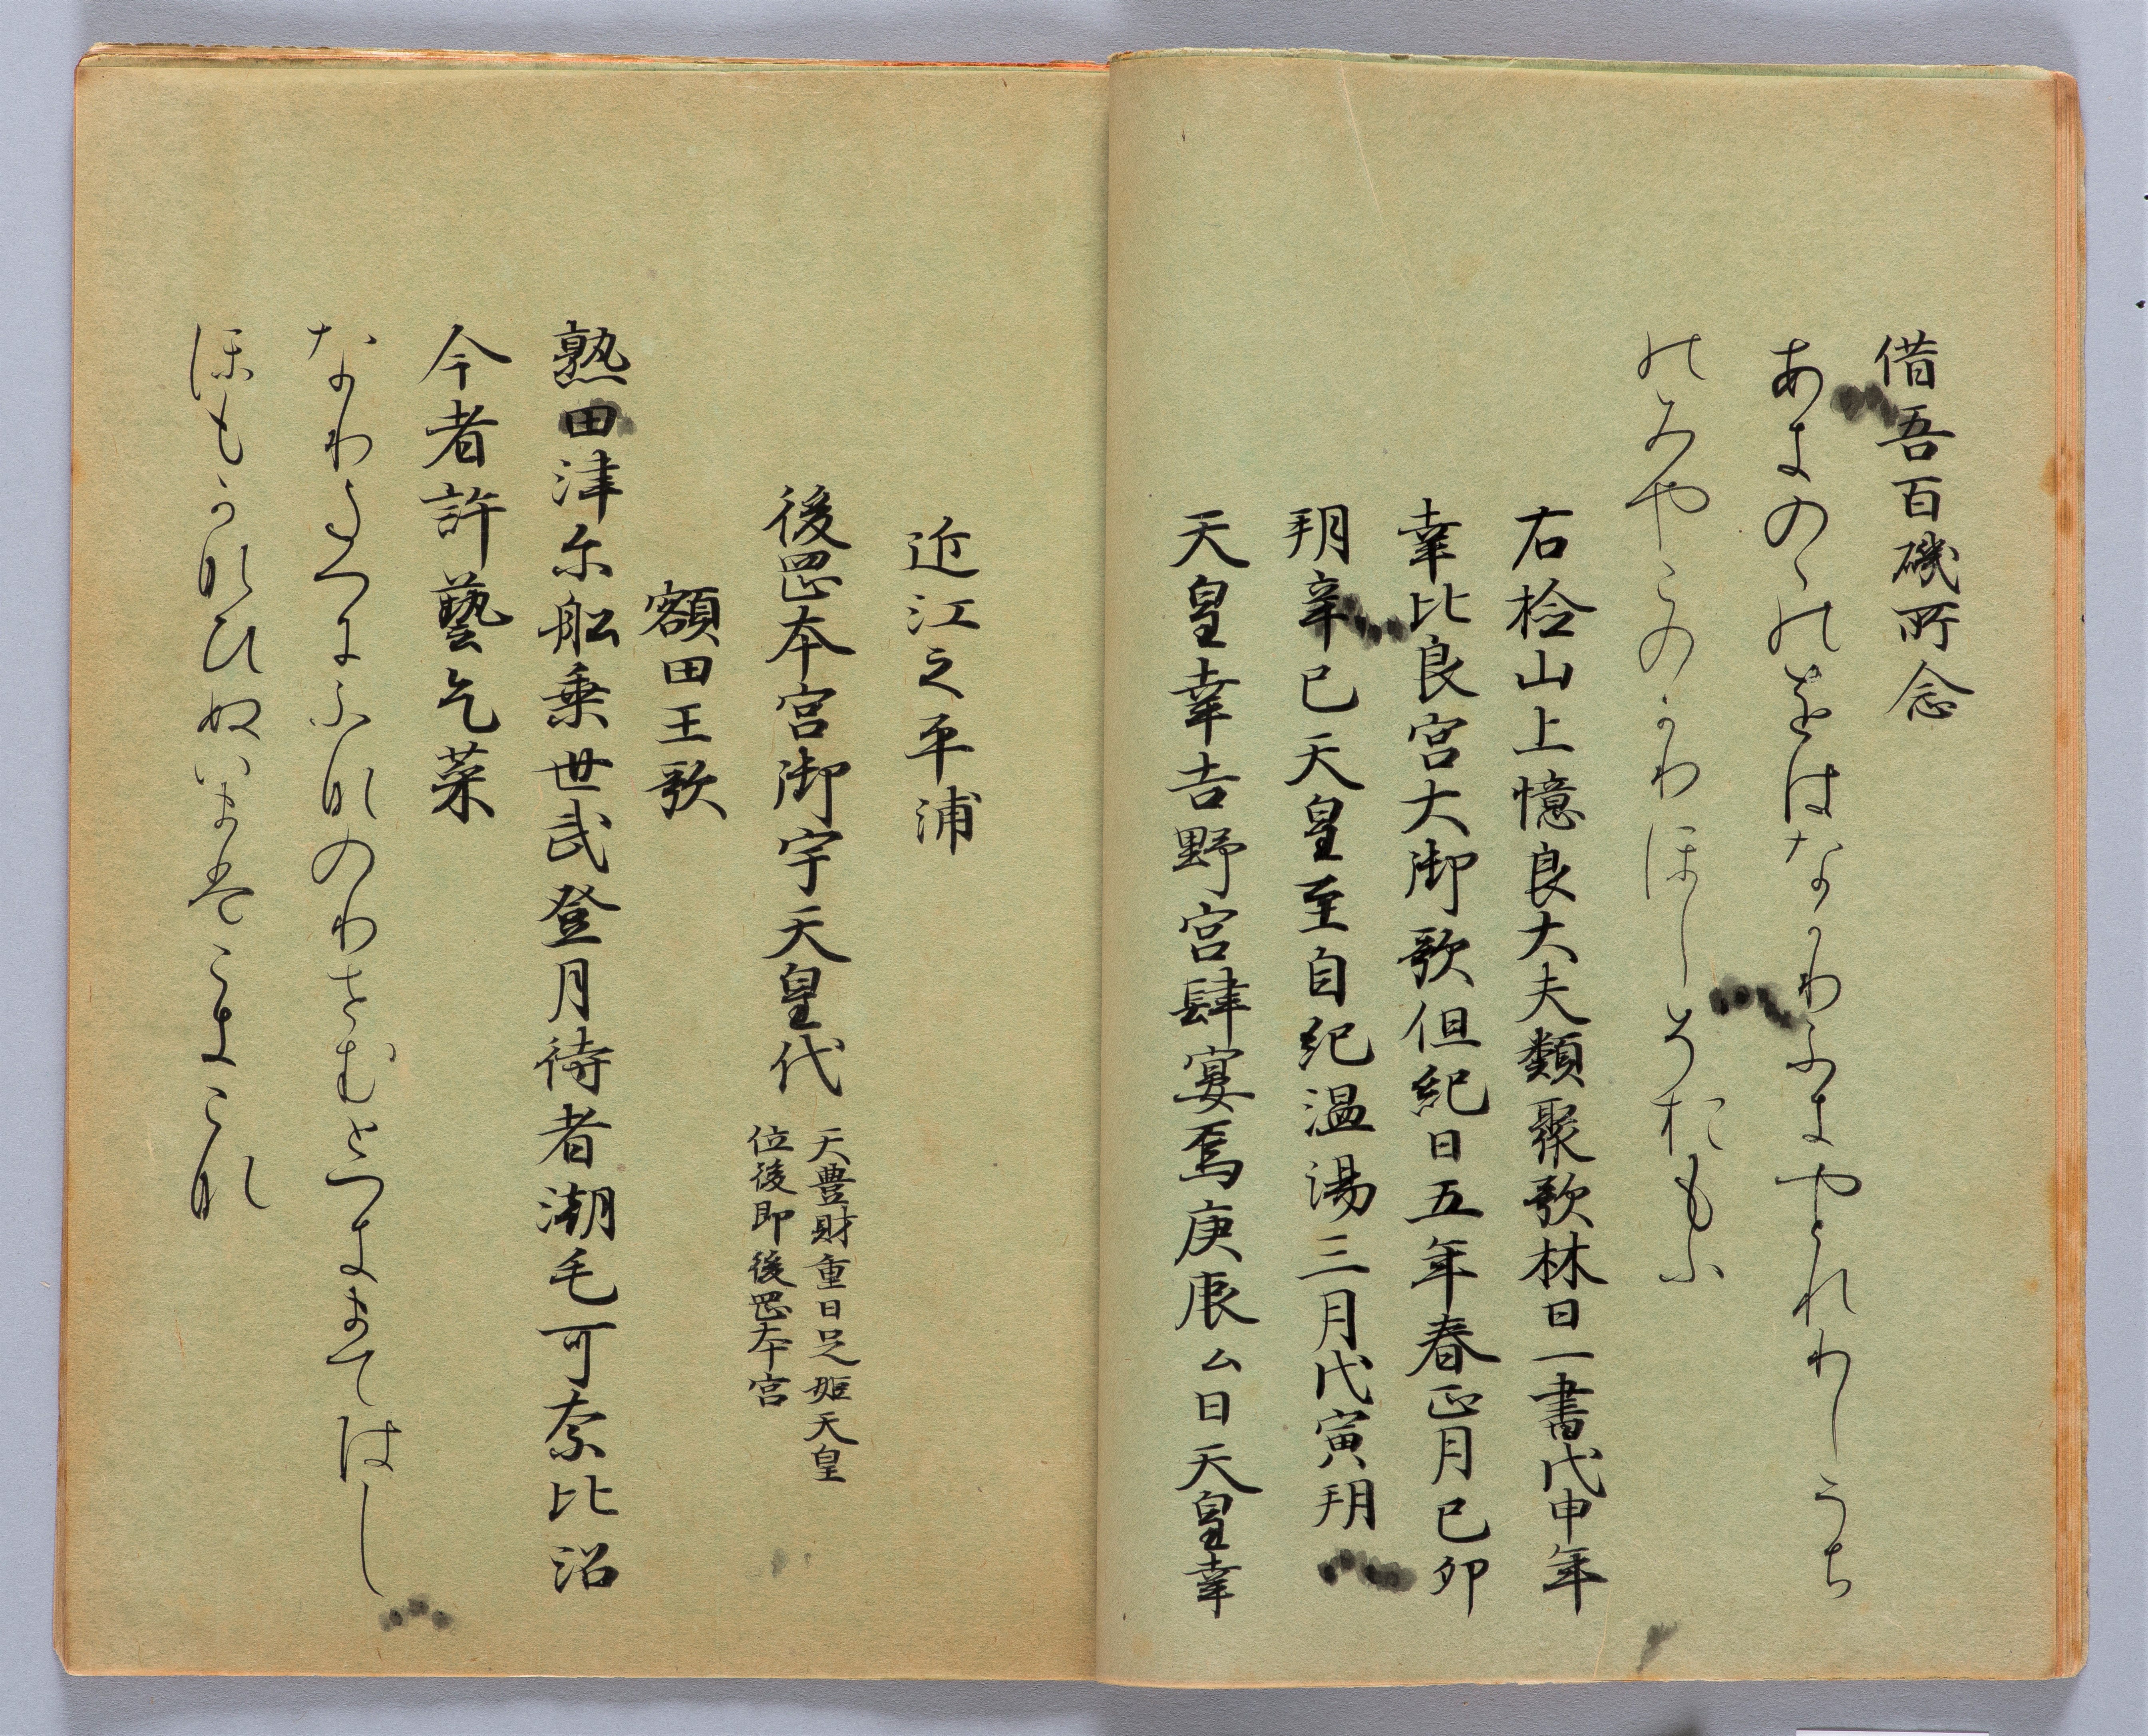 借吾百磯所念
あきのゝのをはなかりふきやとれりしうち
のみやこのかりほしそおもふ
右検山上憶良大夫類聚歌林曰一書戊申年
幸比良宮大御歌但紀曰五年春正月己卯
朔辛巳天皇至自紀温湯三月戊寅朔
天皇幸吉野宮肆宴焉庚辰ム日天皇幸
近江之平浦
後岡本宮御宇天皇代 天豊財重日足姫天皇
位後即後岡本宮
額田王歌
熟田津尓船乗世武登月待者潮毛可奈比沼
今者許藝乞菜
なりたつにふねのりせむとつきまてはし
ほもかなひぬいまはこきこな